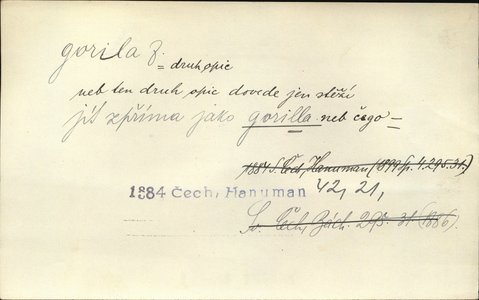 gorila ž.
= druh opic
neb ten druh opic dovede jen stěží
jít zpříma jako gorilla neb čego =
1884 S. Čech, Hanuman (1899 Sp. 4.295.31.)
1884 Čech, Hanuman 42, 21,
Sv. Čech, 295. 31 (1886).